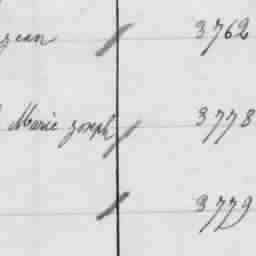 jean 3762
Marie joseph 3778
3779